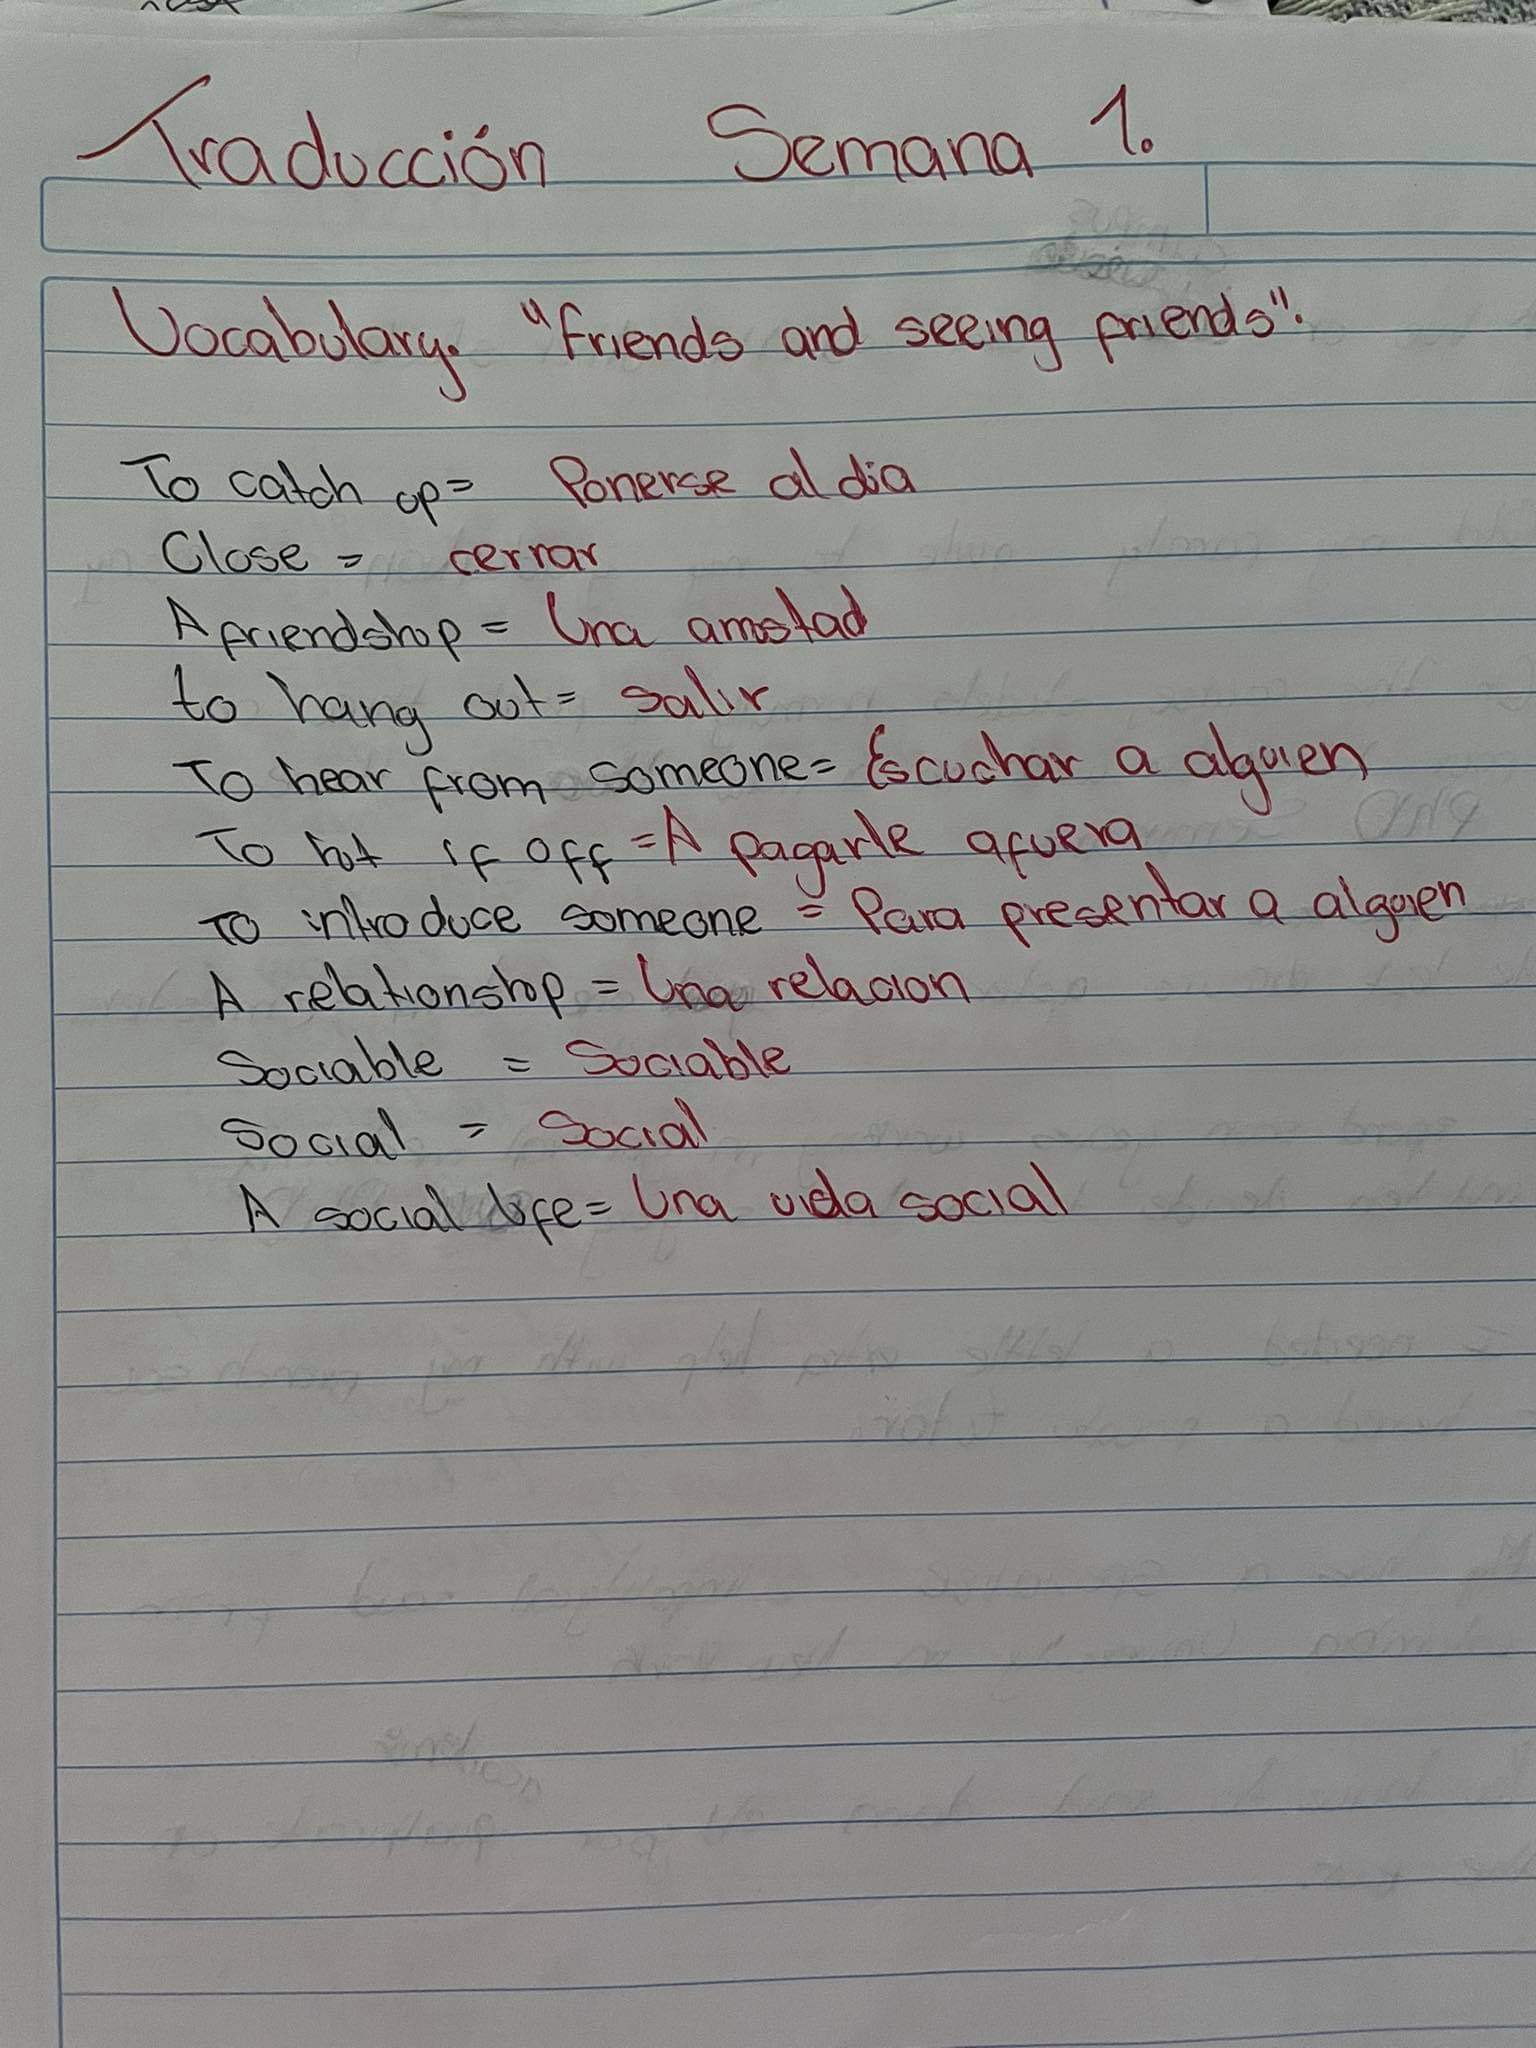 Traducción Semana 1.
Vocabulary. "Friends and seeing friends".
To catch up = Ponerse al dia
Close = cerrar
A friendship = Una amistad
to hang out = salir
To hear from someone = Escuchar a alguien
To hit if off = A pagarle afuera
To introduce someone = Para presentar a alguien
A relationship = Una relacion
Sociable = Sociable
Social = Social
A social life = Una vida social